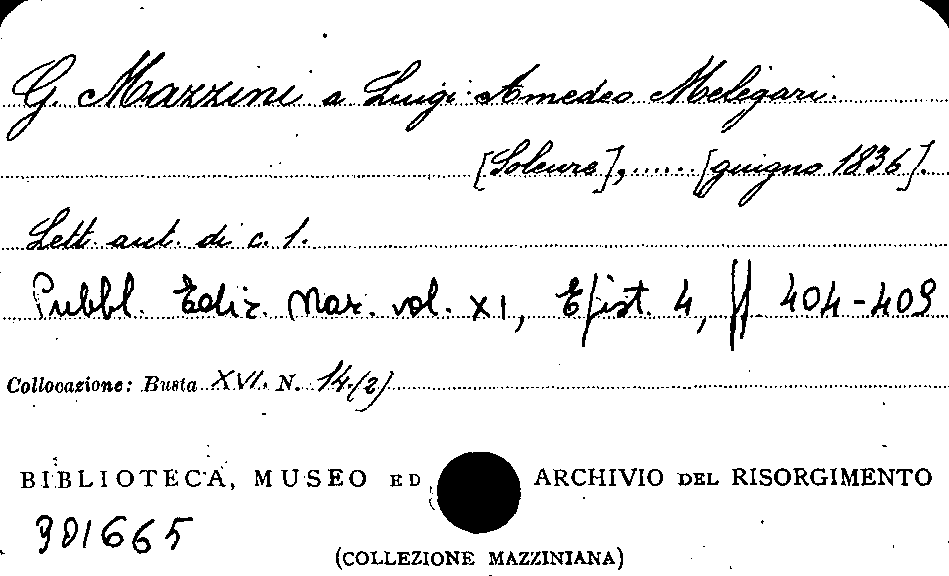 G. Mazzini a Luigi Amedeo Melegari.
[Soleure],...... [giugno 1836].
Lett. aut. di c. 1.
Pubbl. Ediz. Naz. vol. XI, Epist. 4, pp. 404-409
Collocazione: Busta XVI. N. 14.(2)
BIBLIOTECA, MUSEO ED ARCHIVIO DEL RISORGIMENTO
301665
(COLLEZIONE MAZZINIANA)